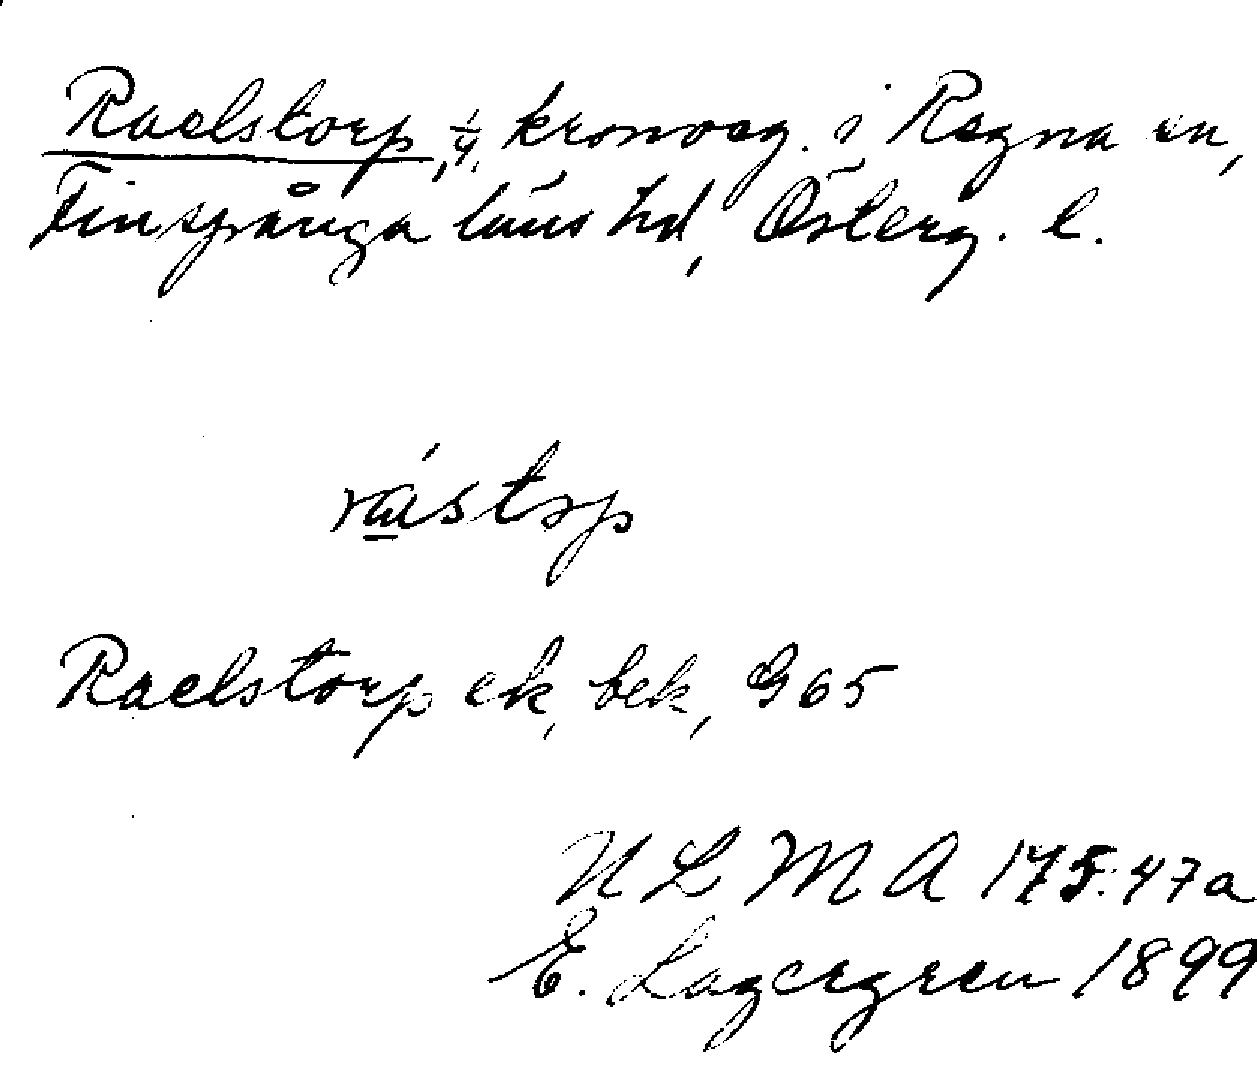 Raelstorp, 1/4, kronoeg. i Regna sn,
Finspånga läns hd, Österg. l.
Raelstorp ek, bek, G 65
U L M A 175:47a
E. Lagergren 1899